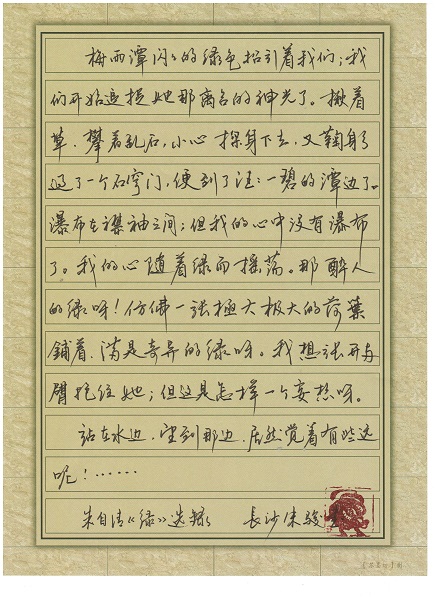 梅雨潭闪闪的绿色招引着我们；我
们开始追捉她那离合的神光了。揪着
草、攀着乱石，小心探身下去，又鞠躬
过了一个石穹门，便到了汪汪一碧的潭边了。
瀑布在襟袖之间；但我的心中没有瀑布
了。我的心随着绿而摇荡。那醉人
的绿呀！仿佛一张極大极大的荷葉
鋪着，满是奇异的绿呀。我想张开两
臂抱住她；但这是怎样一个妄想呀。
站在水边，望到那边，居然觉着有些远
呢！……
朱自清《绿》选录 長沙 朱骏